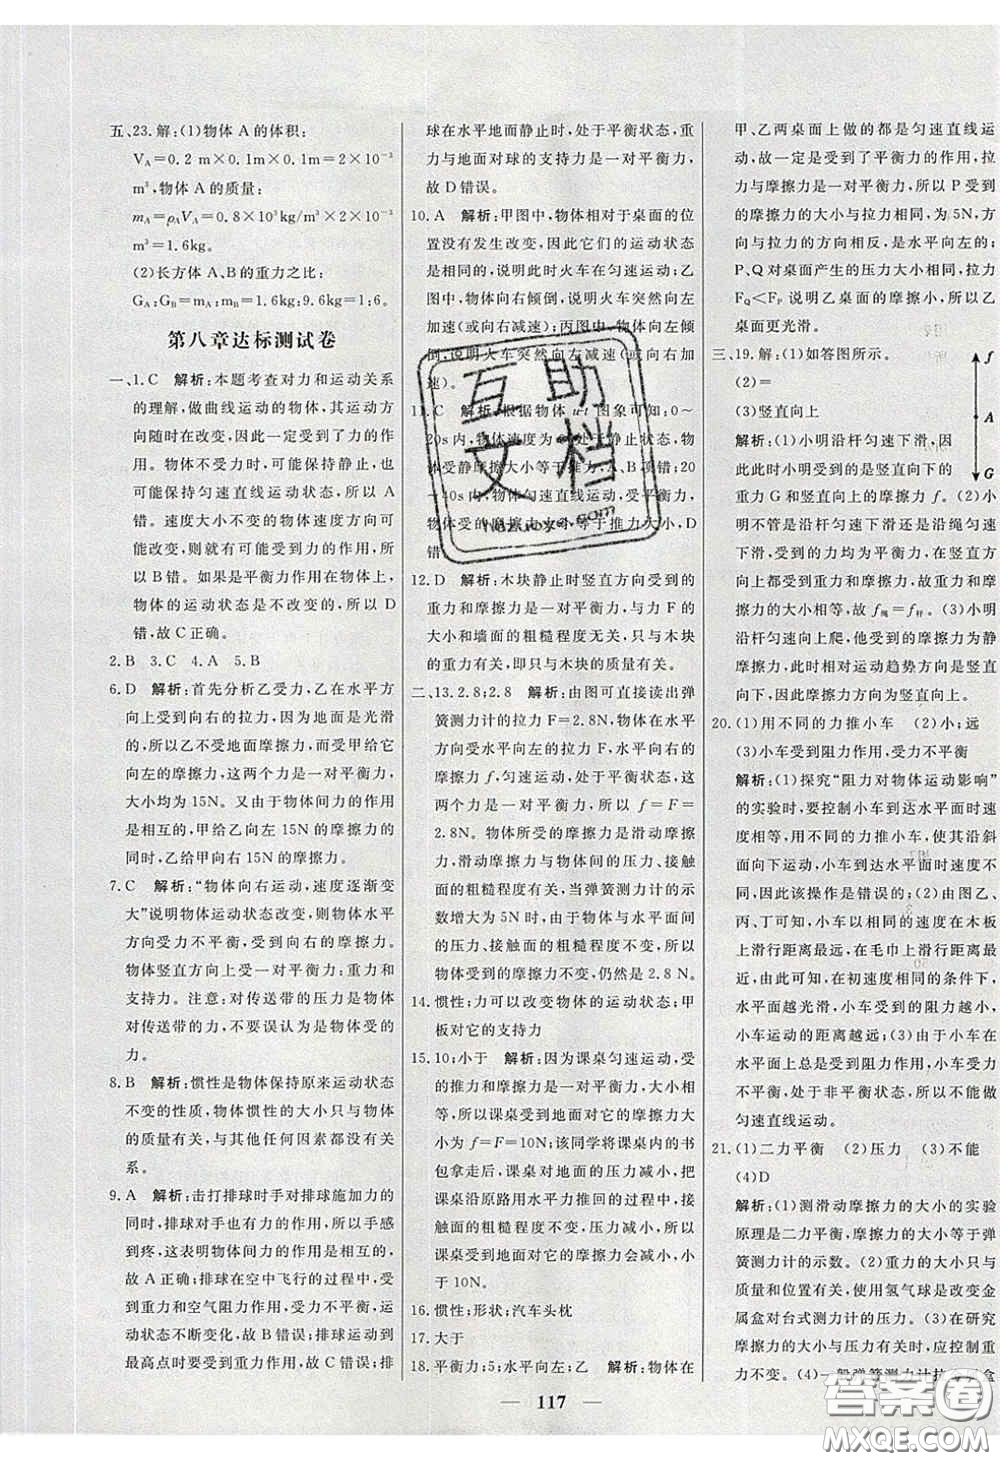 五、23.解:(1)物体 A 的体积:
V_A=0.2 m×0.1m×0.1m=2×10⁻³
m³,物体 A 的质量:
m_A=ρ_AV_A=0.8×10³kg/m³×2×10⁻³
m³=1.6kg。
(2)长方体 A、B的重力之比:
G_A:G_B=m_A:m_B=1.6kg:9.6kg=1:6。
第八章达标测试卷
一、1.C 解析:本题考查对力和运动关系
的理解,做曲线运动的物体,其运动方
向随时在改变,因此一定受到了力的作
用。物体不受力时,可能保持静止,也
可能保持匀速直线运动状态,所以 A
错。速度大小不变的物体速度方向可
能改变,则就有可能受到力的作用,所
以 B错。如果是平衡力作用在物体上,
物体的运动状态是不变的,所以 D
错,故 C正确。
2.B 3.C 4.A 5.B
6.D 解析:首先分析乙受力,乙在水平方
向上受到向右的拉力,因为地面是光滑
的,所以乙不受地面摩擦力,而受甲给它
向左的摩擦力,这两个力是一对平衡力,
大小均为 15N。又由于物体间力的作用
是相互的,甲给乙向左 15N 的摩擦力的
同时,乙给甲向右 15N 的摩擦力。
7.C 解析:“物体向右运动,速度逐渐变
大”说明物体运动状态改变,则物体水平
方向受力不平衡,受到向右的摩擦力。
物体竖直方向上受一对平衡力:重力和
支持力。注意:对传送带的压力是物体
对传送带的力,不要误认为是物体受的
力。
8.B 解析:惯性是物体保持原来运动状态
不变的性质,物体惯性的大小只与物体
的质量有关,与其他任何因素都没有关
系。
9.A 解析:击打排球时手对排球施加力的
同时,排球对手也有力的作用,所以手感
到疼,这表明物体间力的作用是相互的,
故 A 正确;排球在空中飞行的过程中,受
到重力和空气阻力作用,受力不平衡,运
动状态不断变化,故 B 错误;排球运动到
最高点时受到重力作用,故 C 错误;排
球在水平地面静止时,处于平衡状态,重
力与地面对球的支持力是一对平衡力,
故 D 错误。
10.A 解析:甲图中,物体相对于桌面的位
置没有发生改变,因此它们的运动状态
是相同的,说明此时火车在匀速运动;乙
图中,物体向右倾倒,说明火车突然向左
加速(或向右减速);丙图中,物体向左倾
倒,说明火车突然向左减速(或向右加
速)。
11.C 解析:根据物体 v-t 图象可知:0~
20s内,物体速度为 0,处于静止状态,物
体受静摩擦大小等于推力,A、B 项错;20
~40s内,物体匀速直线运动,受力平衡,
物体受的摩擦力大小等于推力大小,D
错。
12.D 解析:木块静止时竖直方向受到的
重力和摩擦力是一对平衡力,与力 F 的
大小和墙面的粗糙程度无关,只与木块
的重力有关,即只与木块的质量有关。
二、13.2.8;2.8 解析:由图可直接读出弹
簧测力计的拉力 F=2.8N,物体在水平
方向受水平向右的拉力 F,水平向左的
摩擦力 f,匀速运动,受力平衡,所以这
两个力是一对平衡力,所以 f=F=
2.8N。物体所受的力是滑动摩擦力,
滑动摩擦力与物体间的压力、接触面
的粗糙程度有关,当弹簧测力计的示
数增大为 5N时,由于物体与水平面间
的压力、接触面的粗糙程度不变,所以
物体受到的摩擦力不变,仍然是 2.8 N。
14.惯性;力可以改变物体的运动状态;甲
板对它的支持力
15.10;小于 解析:因为课桌匀速运动,受
的推力和摩擦力是一对平衡力,大小相
等,所以课桌受到地面对它的摩擦力大
小为 f=F=10N;该同学将课桌内的书
包拿走后,课桌对地面的压力减小,把
课桌沿原路用水平力推回的过程中,接
触面的粗糙程度不变,压力减小,所以
课桌受到地面对它的摩擦力会减小,小
于 10N。
16.惯性;形状;汽车头枕
17.大于
18.平衡力;5;水平向左;乙 解析:物体在
甲、乙两桌面上做的都是匀速直线运
动,故一定是受到了平衡力的作用,拉
力与摩擦力是平衡力,所以 P 受到
的摩擦力的大小与拉力相同,为 5N,
方向与拉力的方向相反,是水平向左的;
P、Q 对桌面产生的压力大小相同,拉力
F_Q<F_P 说明乙桌面的摩擦小,所以乙
桌面更光滑。
三、19.解:(1)如答图所示。
(2)=
(3)竖直向上
f
A
G
解析:(1)小明沿杆匀速下滑,因
此此时小明受到的是竖直向下的
重力 G 和竖直向上的摩擦力 f。(2)小
明不管是沿杆匀速下滑还是沿绳匀速
下滑,受到的力均为平衡力,在竖直方
向均是重力和摩擦力,因此重力和摩擦
力的大小相等,故 f绳=f杆。(3)小明
沿杆匀速向上爬,受到的摩擦力与重力
平衡,相对运动趋势方向是竖直向下,
因此摩擦力方向为竖直向上。
20.(1)用不同的力推小车 (2)小;远
(3)小车受到阻力作用,受力不平衡
解析:(1)探究“阻力对物体运动影响”
的实验时,要控制小车到达水平面时速
度相等,用不同的力推小车,使其沿斜
面向下运动,小车到达水平面时速度不
同,因此该操作是错误的;(2)由图乙、
丙、丁可知,小车以相同的速度在木板
上滑行距离最远,在毛巾上滑行距离最
近,由此可知,在初速度相同的条件下,
水平面越光滑,小车受到的阻力越小,
小车运动的距离越远;(3)由于小车在
水平面上总是受到阻力作用,小车受力
不平衡,处于非平衡状态,所以不能做
匀速直线运动。
21.(1)二力平衡 (2)压力 (3)不能
(4)D
解析:(1)测滑动摩擦力的大小的实验
原理是二力平衡,摩擦力的大小等于弹
簧测力计的示数。(2)重力的大小只与
质量和位置有关,使用氢气球是改变金
属盒对台式测力计的压力。(3)在研究
摩擦力的大小与压力有关时,应控制重
力不变。(4)一般弹簧测力计拉持金属盒
互助文档
Hozuoye.com
答案圈
MXQE.COM
117